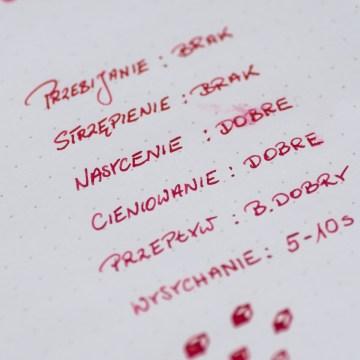 PRZEBIJANIE : BRAK
STRZĘPIENIE : BRAK
NASYCENIE : DOBRE
CIENIOWANIE : DOBRE
PRZEPŁYW : B.DOBRY
WYSYCHANIE : 5-10s